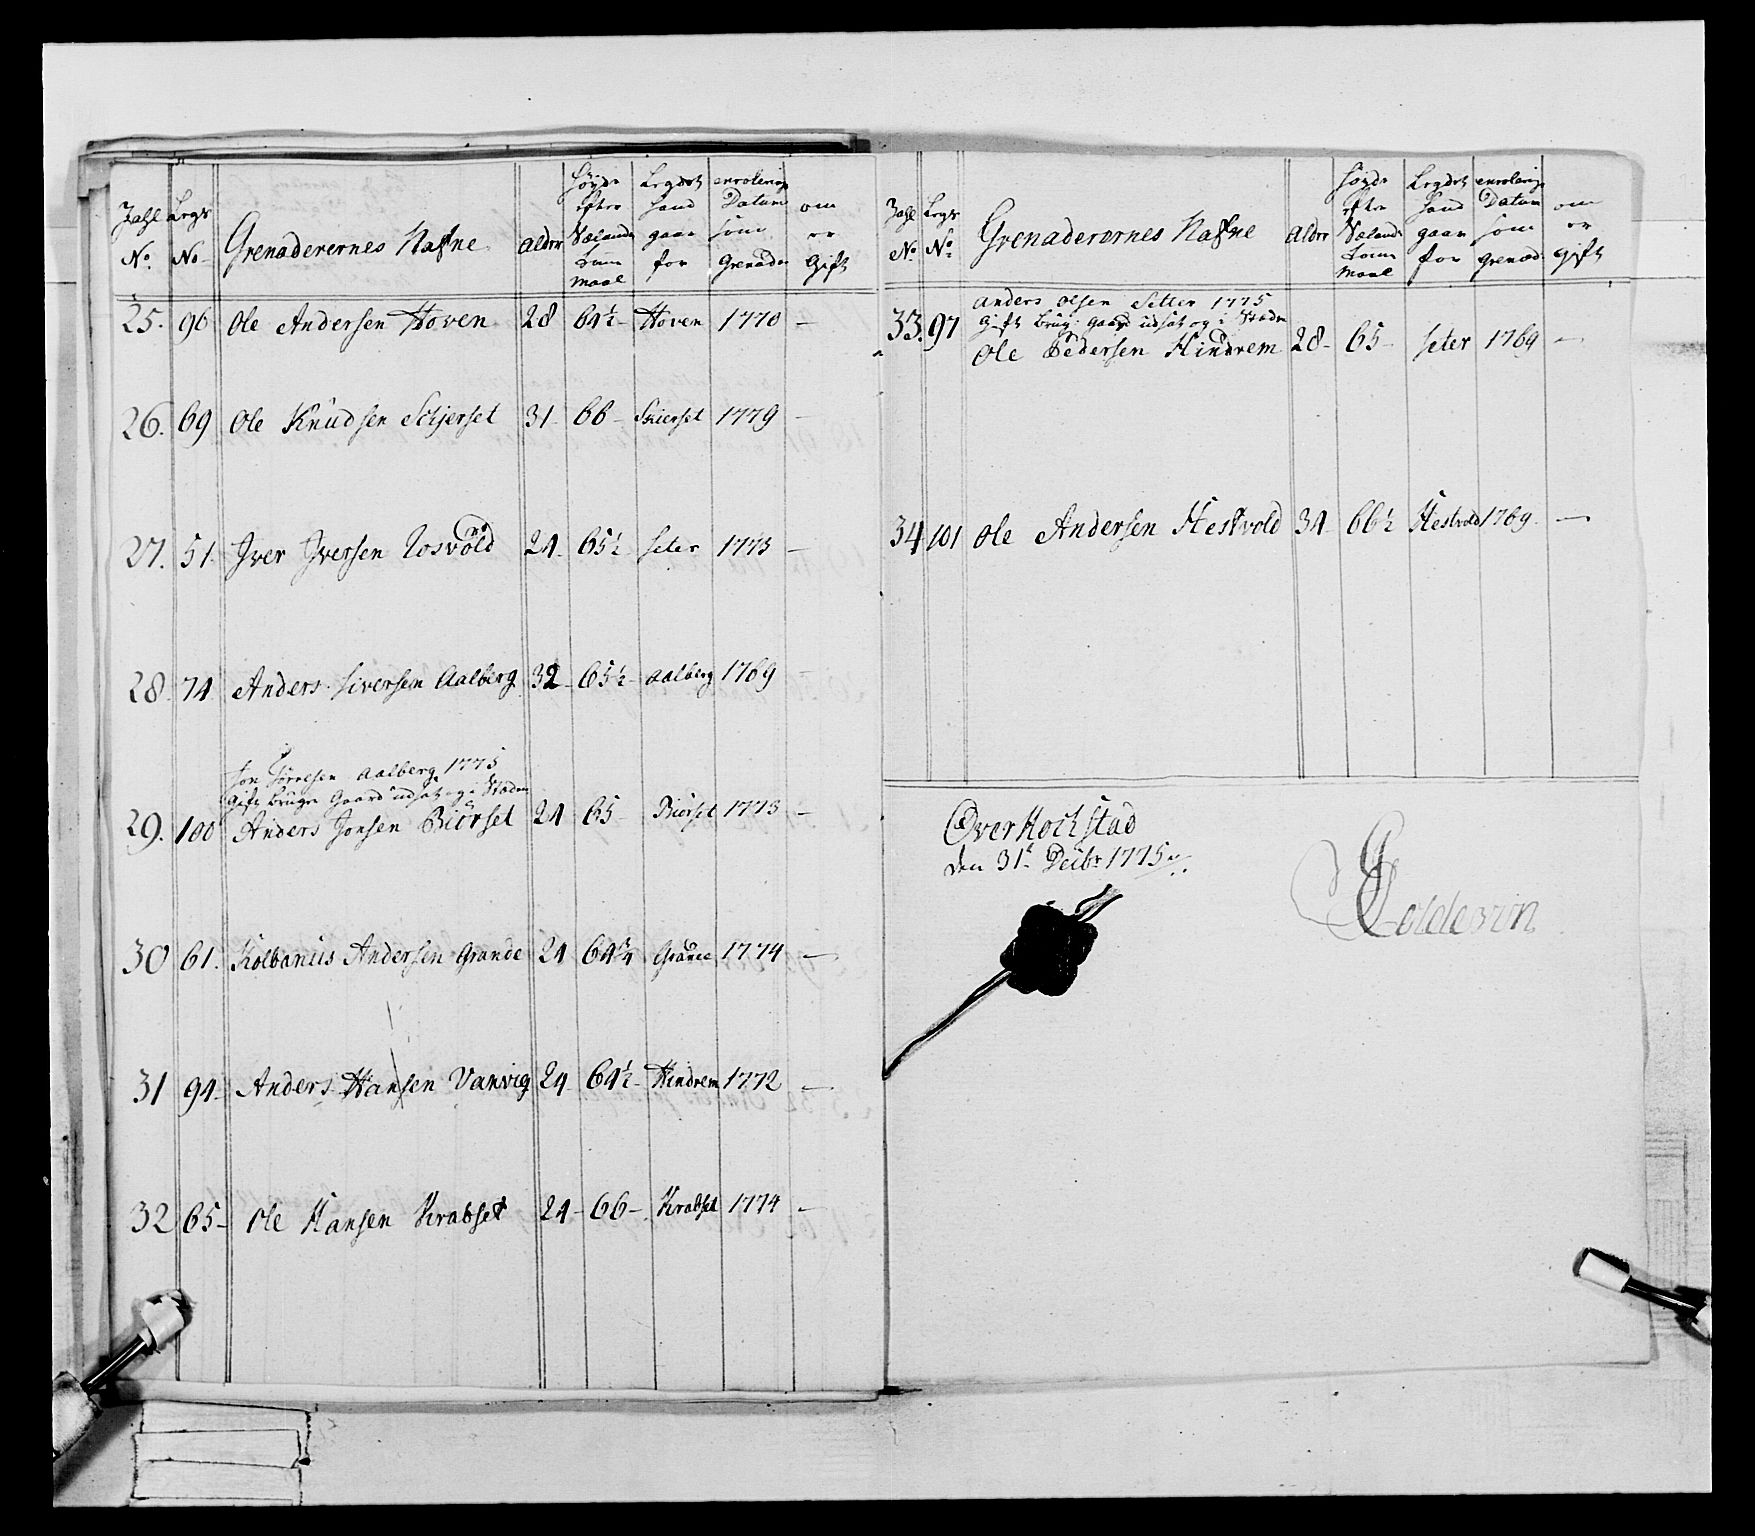 Zahl No. Legs No. Grenaderernes Nafne alder Høyde efter Sælands Lom maal Legdet hand gaar for enrolering Datum som Grenader om er Gift
25. 96 Ole Andersen Hoven 28 64½ Hoven 1770 —
26. 69 Ole Knudsen Schjerset 31 66 – Skierset 1779 –
27. 51 Iver Iversen Rosvold 24 65½ seter 1773 –
28. 74 Anders Siversen Aalberg 32 65½ aalberg 1769 –
Jon Torresen aalberg 1775
Gift bruger Gaard udsat og i Steden
29. 100 Anders Jonsen Biörset 24 65 Biörset 1773 –
30 61. Kolbanus Andersen Grande 24 64¾ Grande 1774 –
31 94 – Anders Hansen Vanvig 24 – 64½ – Hindrem 1772 –
32 65 – Ole Hansen Krabset 24 – 66 – Krabset 1774 –
Zahl No. Legs No. Grenaderernes Nafne alder Høyde efter Sælands Lom maal Legdet hand gaar for enrolering Datum som grenad om er gift
anders olsen Setter 1775
Gift brug: gaard udsat og i Steden
33. 97 Ole Pedersen Hindrem 28 – 65 – seter 1769 –
34 101 Ole Andersen Hestvold 34 66½ Hestvold 1769. –
Den 31t Decibr 1775